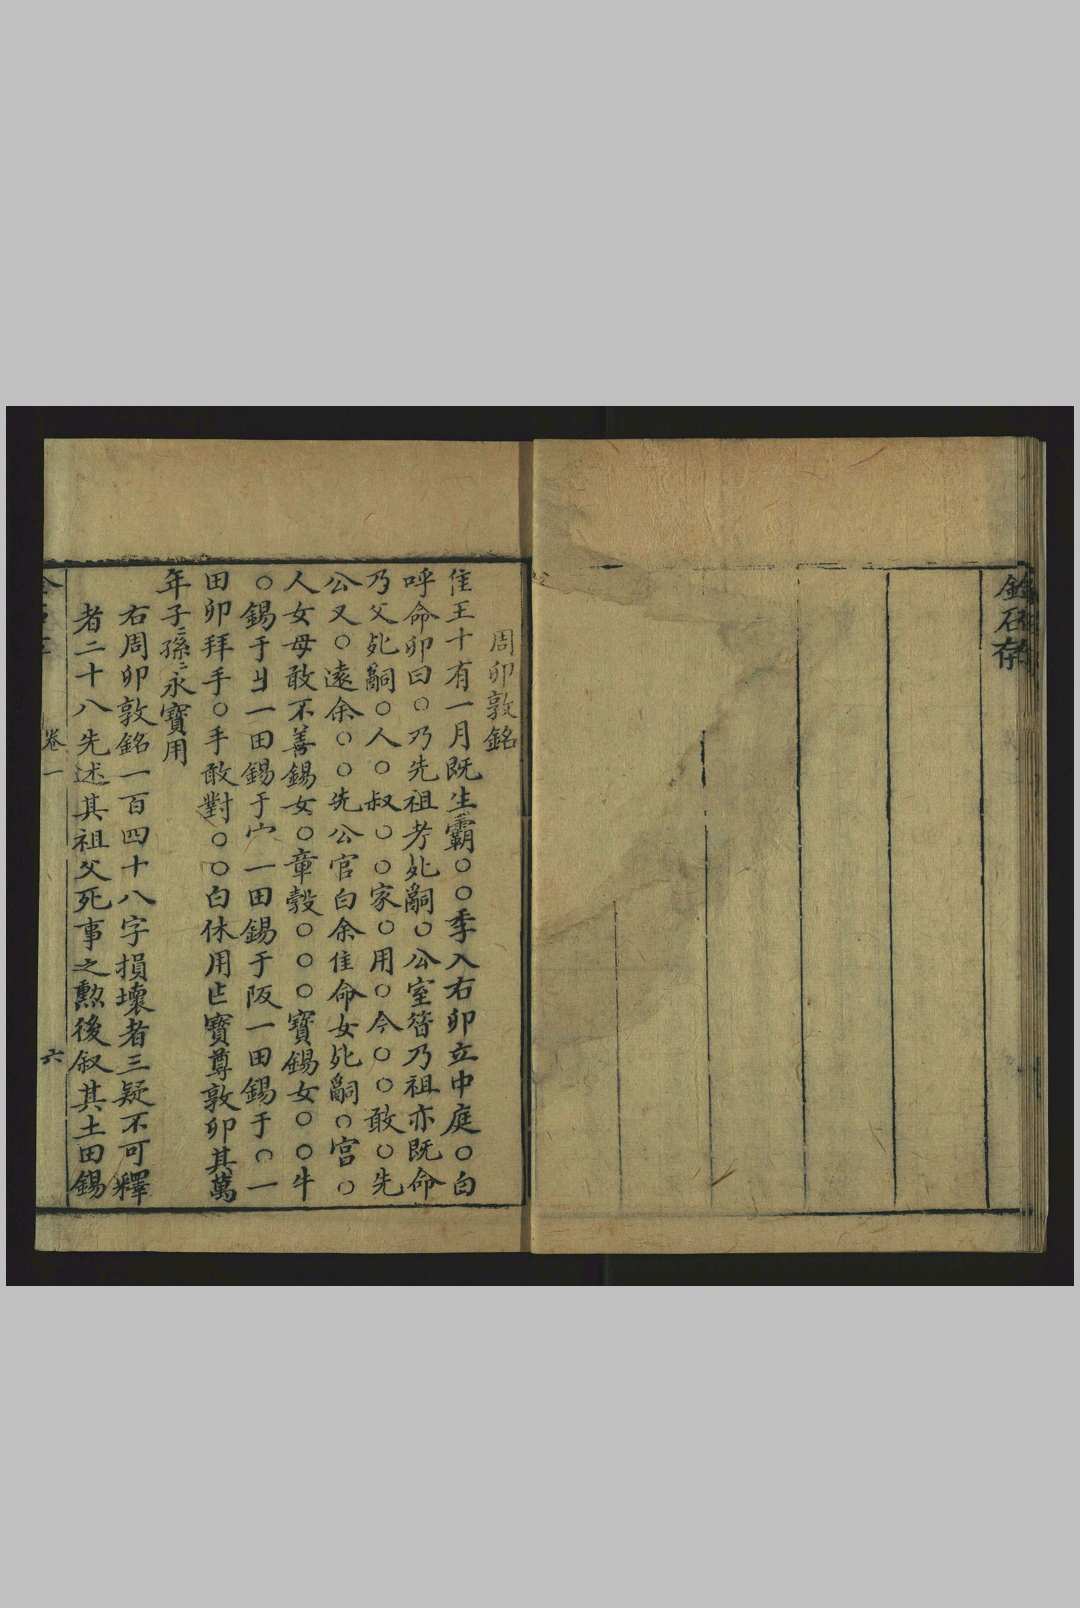 金石存
周卯敦銘
隹王十有一月既生霸○○季入右卯立中庭○白
呼命卯曰○乃先祖考𣦸嗣○公室㫺乃祖亦既命
乃父𣦸嗣○人○叔○○家○用○今○○敢○先
公又○遠余○○先公官白余隹命女𣦸嗣○宮○
人女母敢不善錫女○章㲄○○○寶錫女○○牛
○錫于一田錫于宀一田錫于阪一田錫于○一
田卯拜手○手敢對○○白休用乍寶尊敦卯其萬
年子〻孫〻永寶用
右周卯敦銘一百四十八字損壞者三疑不可釋
者二十八先述其祖父死事之勲後叙其土田錫
卷一
六